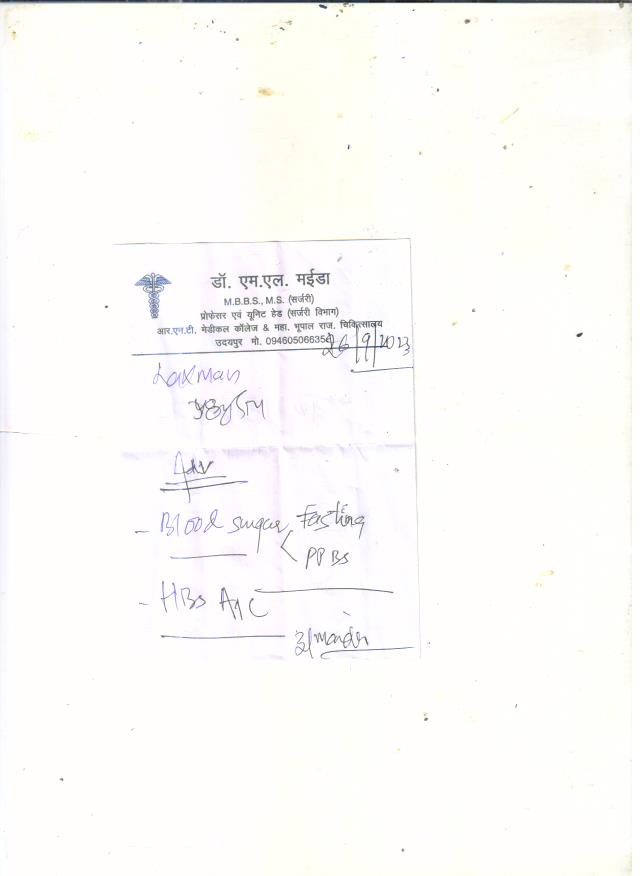 डॉ. एम.एल. मईडा
M.B.B.S., M.S. (सर्जरी)
प्रोफेसर एवं यूनिट हेड (सर्जरी विभाग)
आर.एन.टी. मेडीकल कॉलेज & महा. भूपाल राज. चिकित्सालय
उदयपुर मो. 09460506635
26/9/2023
Laxman
Adv
- Blood sugar Fasting
PPBS
- HBs A1C